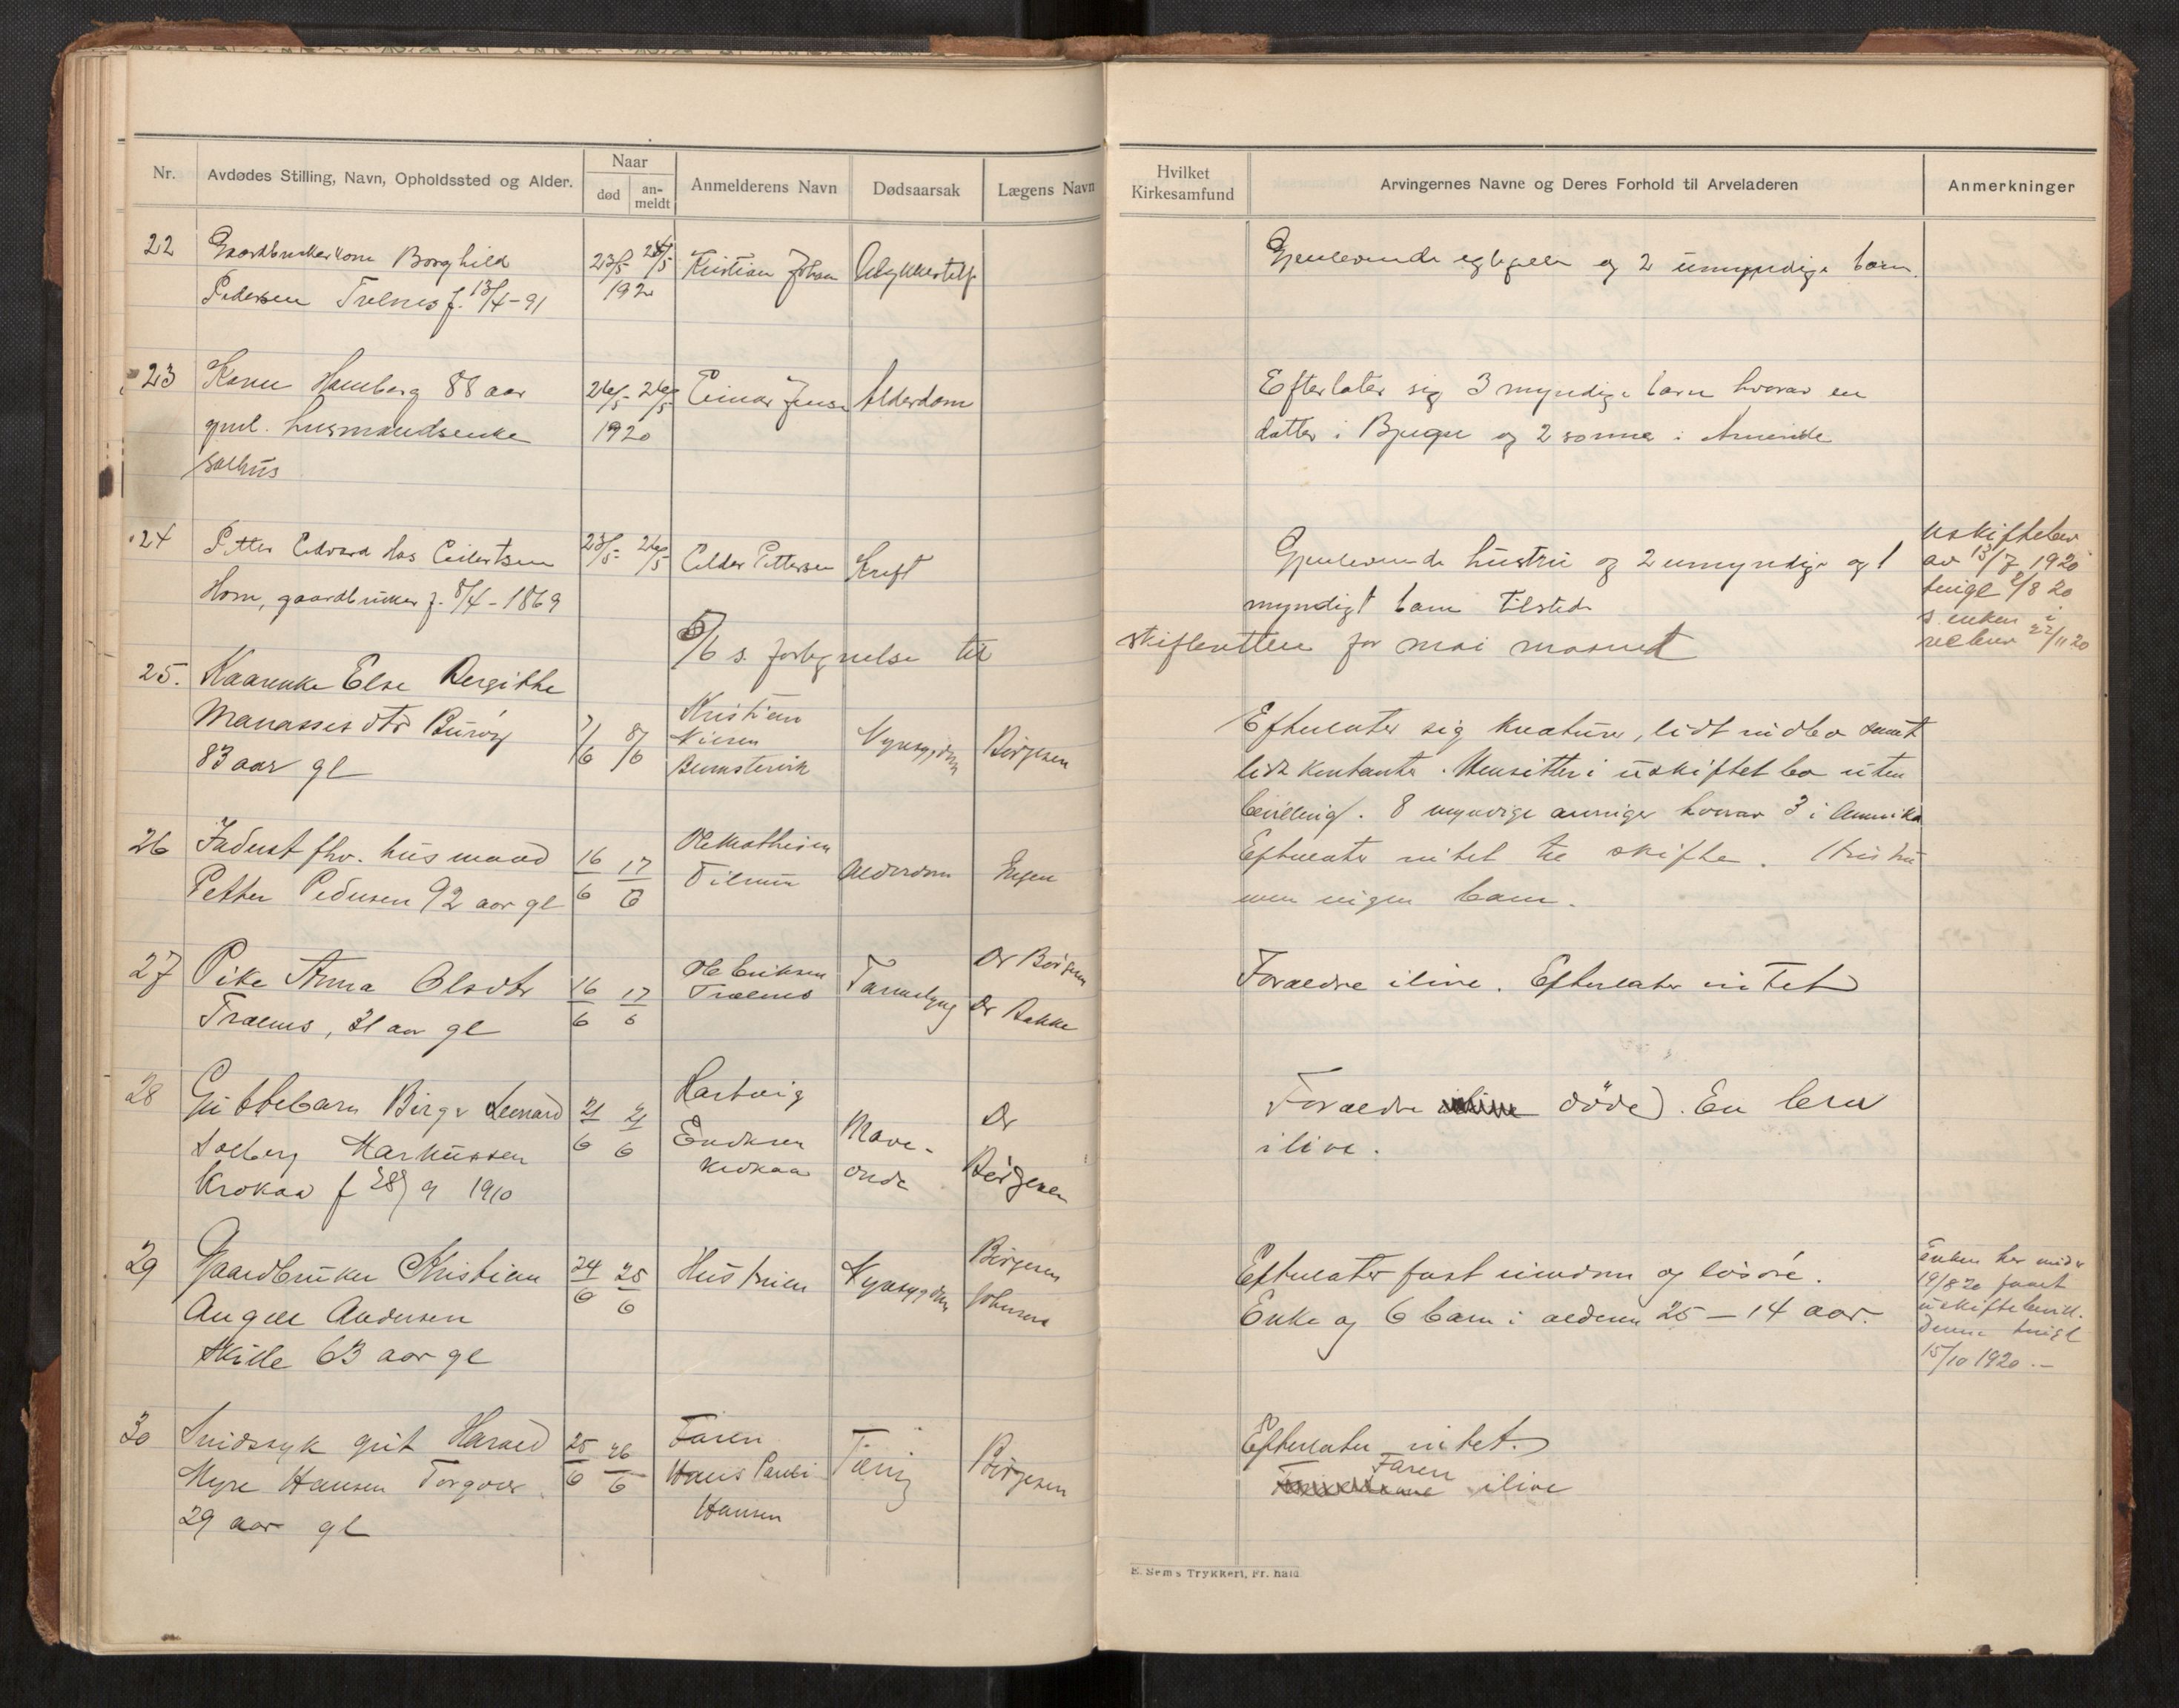 Nr.
Avdødes Stilling, Navn, Opholdssted og Alder.
Naar
død
an-
meldt
Anmelderens Navn
Dødsaarsak
Lægens Navn
Hvilket
Kirkesamfund
Arvingernes Navne og Deres Forhold til Arveladeren
Anmerkninger
22 Gaardbrukerkone Borghild 23/5 24/5 Kristian Johan Ulykkestilf Gjenlevende egtefelle og 2 umyndige barn.
Pedersen Trelnes f. 13/4-91 1920
23 Karen Hamborg 88 aar 26/5 26/5 Einar Jensen Alderdom Efterlater sig 3 myndige barn hvorav en
husmandsenke 1920 datter i og 2 sønner i Amerika
Solhus
24 Petter Edvard Hos Eilertsen 23/5 26/5 Eldar Pettersen Kreft Gjenlevende hustru og 2 umyndige og 1
Horn, gaardbruker f. 8/4-1869 myndigt barn tilstede
uskiftebev
av 13/7 1920
tingl 2/8 20
s. enken i
22/11 20
5/6 s. fortegnelse til skifteretten for mai maaned
25. Kaarenke Else Bergitte Kristian
Manasses dtr Burøy 7/6 8/6 Nilsen Nyresygdom Børgesen Efterlater sig kreaturer, lidt indbo samt
83 aar gl lidt kontanter. Hensitter i uskiftet bo uten
bevilling. 8 myndige arvinger hvorav 3 i Amerika
26 Inderst fhv. husmand 16/6 17/6 Ole Mathisen Alderdom Engen Efterlater intet til skifte. Hustru
Petter Pedersen 92 aar gl Tilrem men ingen barn.
27 Pike Anna Olsdtr 16/6 17/6 Ole Eriksen Dr Børgesen Forældre ilive. Efterlater intet
Trælnes, 31 aar gl Trælnes Dr Bakke
28 Guttebarn Birger Leonard 21/6 21/6 Hartvig Mave- Dr Forældre døde. En bror
Solberg Markussen Eriksen onde Børgesen ilive.
Krokaa f 28/9 1910 Krokaa
29 Gaardbruker Kristian 24/6 25/6 Hustruen Nyresygdom Børgesen Efterlater fast eiendom og løsøre.
Angell Andersen Johnsen Enke og 6 barn i alderen 25 – 14 aar.
Skille 63 aar gl
Enken har under
19/8 20 faaet
uskiftebevill.
Denne tingl
15/10 1920.-
30 Sindssyk gut Harald 25/6 26/6 Faren Tæring Børgesen Efterlater intet.
Myre Hansen Torgøer Hans Pareli Faren ilive
29 aar gl Hansen
E. Sems Trykkeri, Fr.hald